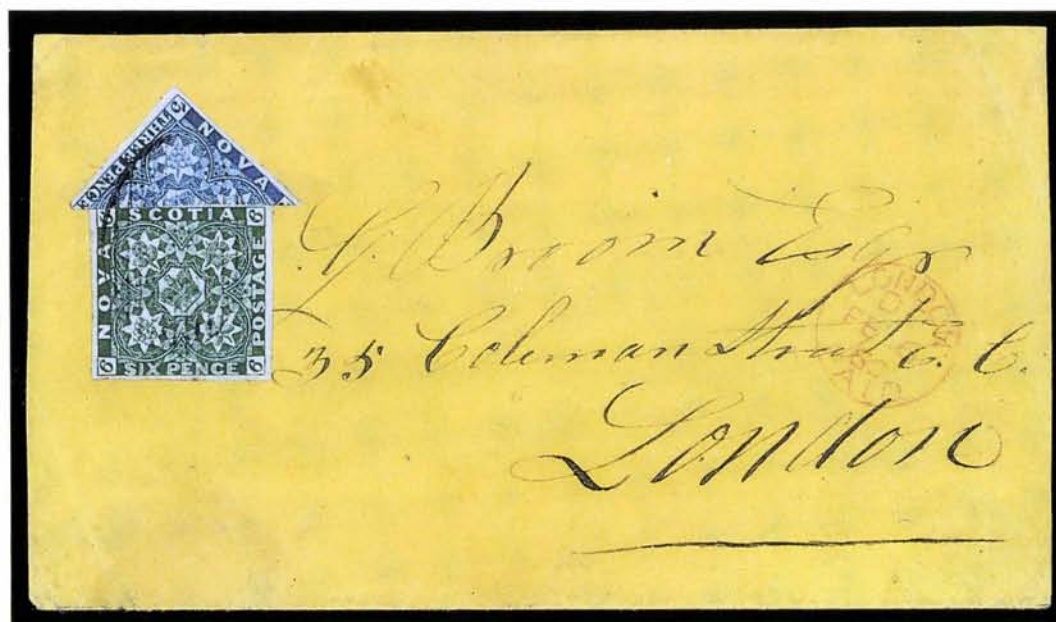 3 THREE PENCE 3
NOVA
6 SCOTIA 6
NOVA
POSTAGE
6 SIX PENCE 6
Broom Esqr
35 Coleman Street E. C.
London
LONDON
PAID